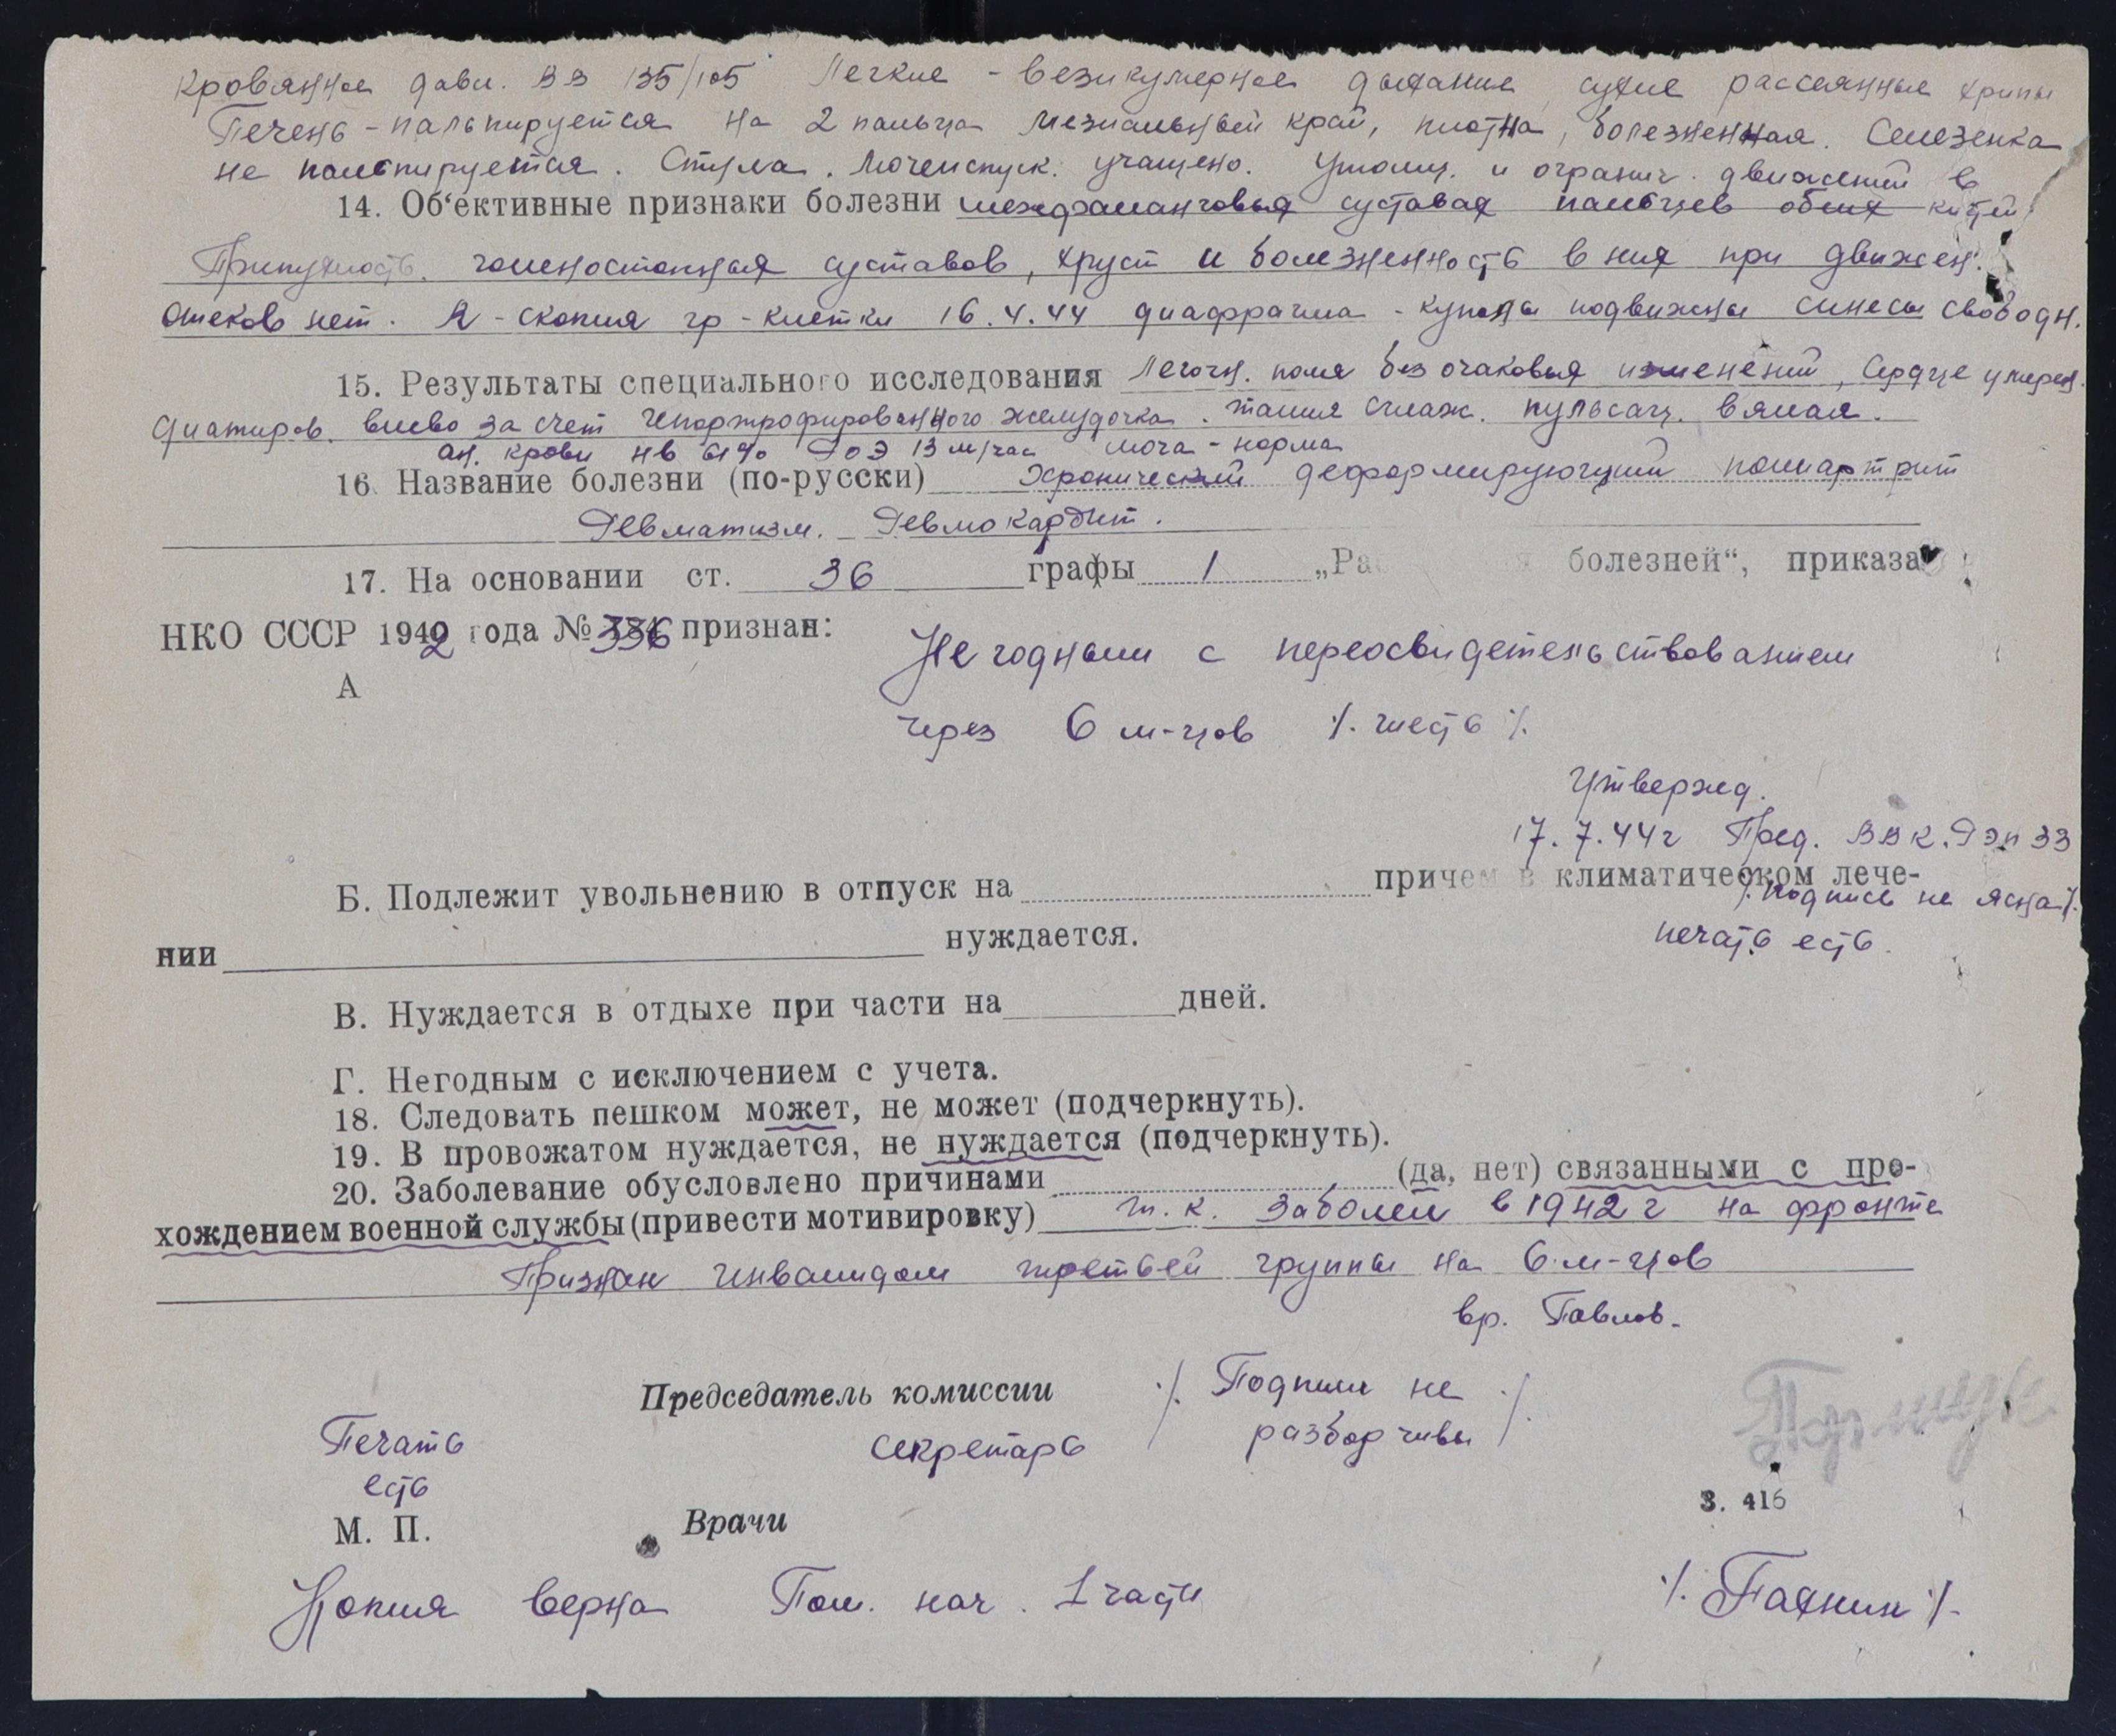 Кровянное давл. ВВ 135/105 Легкие - везикулерное дыхание, сухие рассеянные хрипы
Печень - пальпируется на 2 пальца мезиальный край, плотна, болезненная. Селезенка
не пальпируется. Стула. Мочеиспуск. учащено. Утолщ. и огранич. движений в
14. Об‘ективные признаки болезни межфаланговых суставах пальцев обеих кистей
Припухлость голеностопных суставов, хруст и болезненность в них при движен.
отеков нет. R-скопия гр-клетки 16.4.44 диафрагма - купола подвижны синесы свободн.
15. Результаты специального исследования Легочн. поля без очаковых изменений, Сердце умерен.
диатиров. влево за счет гипортрофированного желудочка. талия сглаж. пульсац. вялая.
ан. крови нв 61% РОЭ 13 м/час моча - норма
16. Название болезни (по-русски) Хронический деформирующий полиартрит
Ревматизм. Ревмокардит.
17. На основании ст. 36 графы 1 „Ра болезней“, приказа
НКО СССР 1942 года № 336 признан:
Негодным с переосвидетельствованием
А
через 6 м-цов ·/. шесть ·/.
Утвержд.
17.7.44г Пред. ВВК. РЭП 33
Б. Подлежит увольнению в отпуск на причем в климатическом лече-
·/. подпись не ясна ·/.
нии нуждается.
печать есть.
В. Нуждается в отдыхе при части на дней.
Г. Негодным с исключением с учета.
18. Следовать пешком может, не может (подчеркнуть).
19. В провожатом нуждается, не нуждается (подчеркнуть).
20. Заболевание обусловлено причинами (да, нет) связанными с про-
хождением военной службы (привести мотивировку) т.к. заболел в 1942 г на фронте
Признан инвалидом третьей группы на 6 м-цов
вр. Павлов.
Председатель комиссии ·/. Подписи не ·/.
Печать
секретарь разборчивы
есть
З. 416
М. П. Врачи
Копия верна Пом. нач. 1 части ·/. Пахнин ·/.